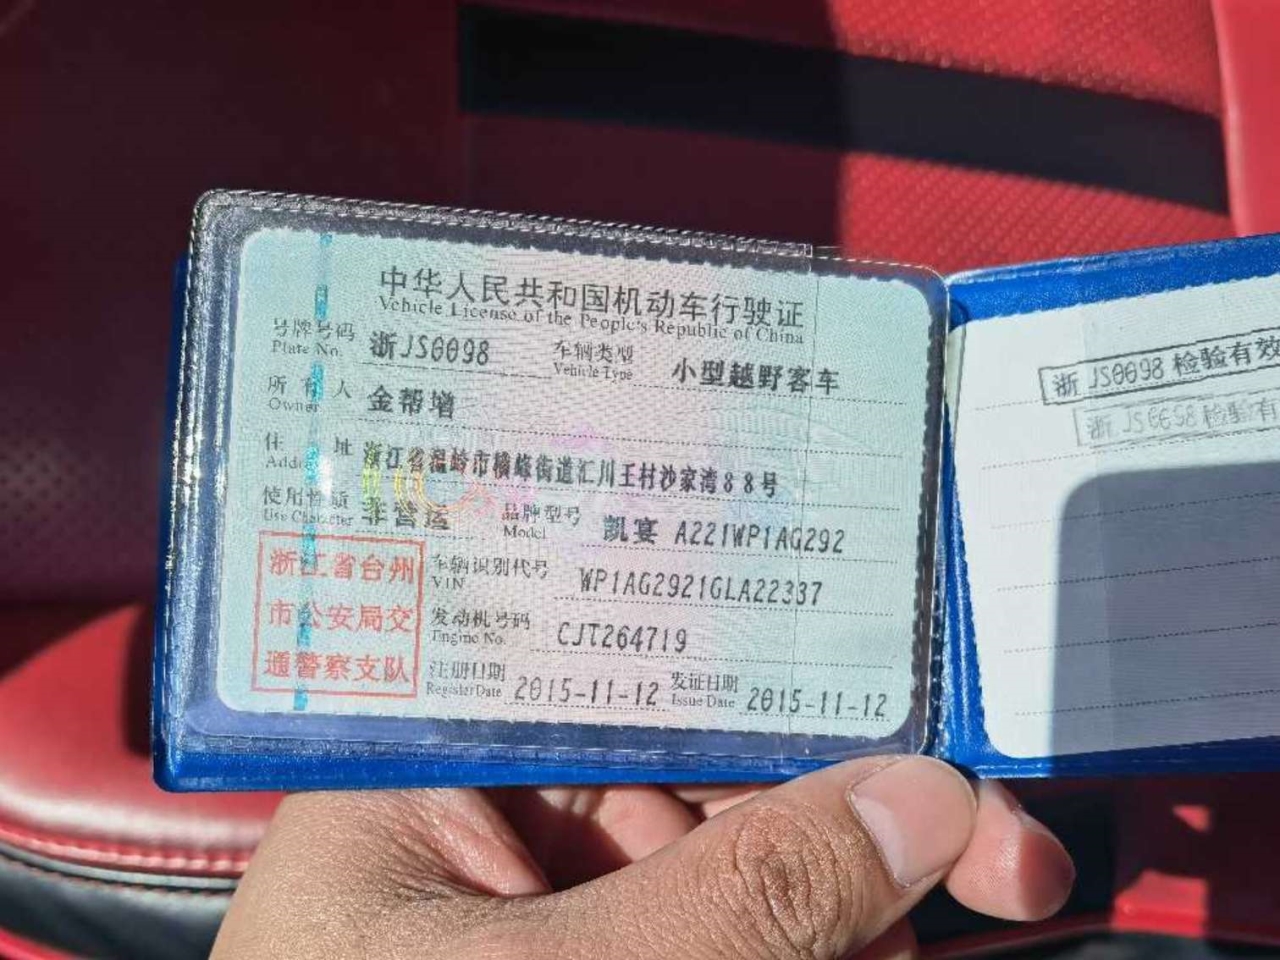 中华人民共和国机动车行驶证
Vehicle License of the People's Republic of China
号牌号码 浙JS0098 车辆类型 小型越野客车
Plate No. Vehicle Type
所有人 金帮增
Owner
住址 浙江省温岭市横峰街道汇川王村沙家湾88号
Address
使用性质 非营运 品牌型号 凯宴 A221WP1AG292
Use Character Model
车辆识别代号 WP1AG2921GLA22337
VIN
发动机号码 CJT264719
Engine No.
注册日期 2015-11-12 发证日期 2015-11-12
Register Date Issue Date
浙江省台州
市公安局交
通警察支队
浙 JS0098 检验有效
浙 JS0098 检验有